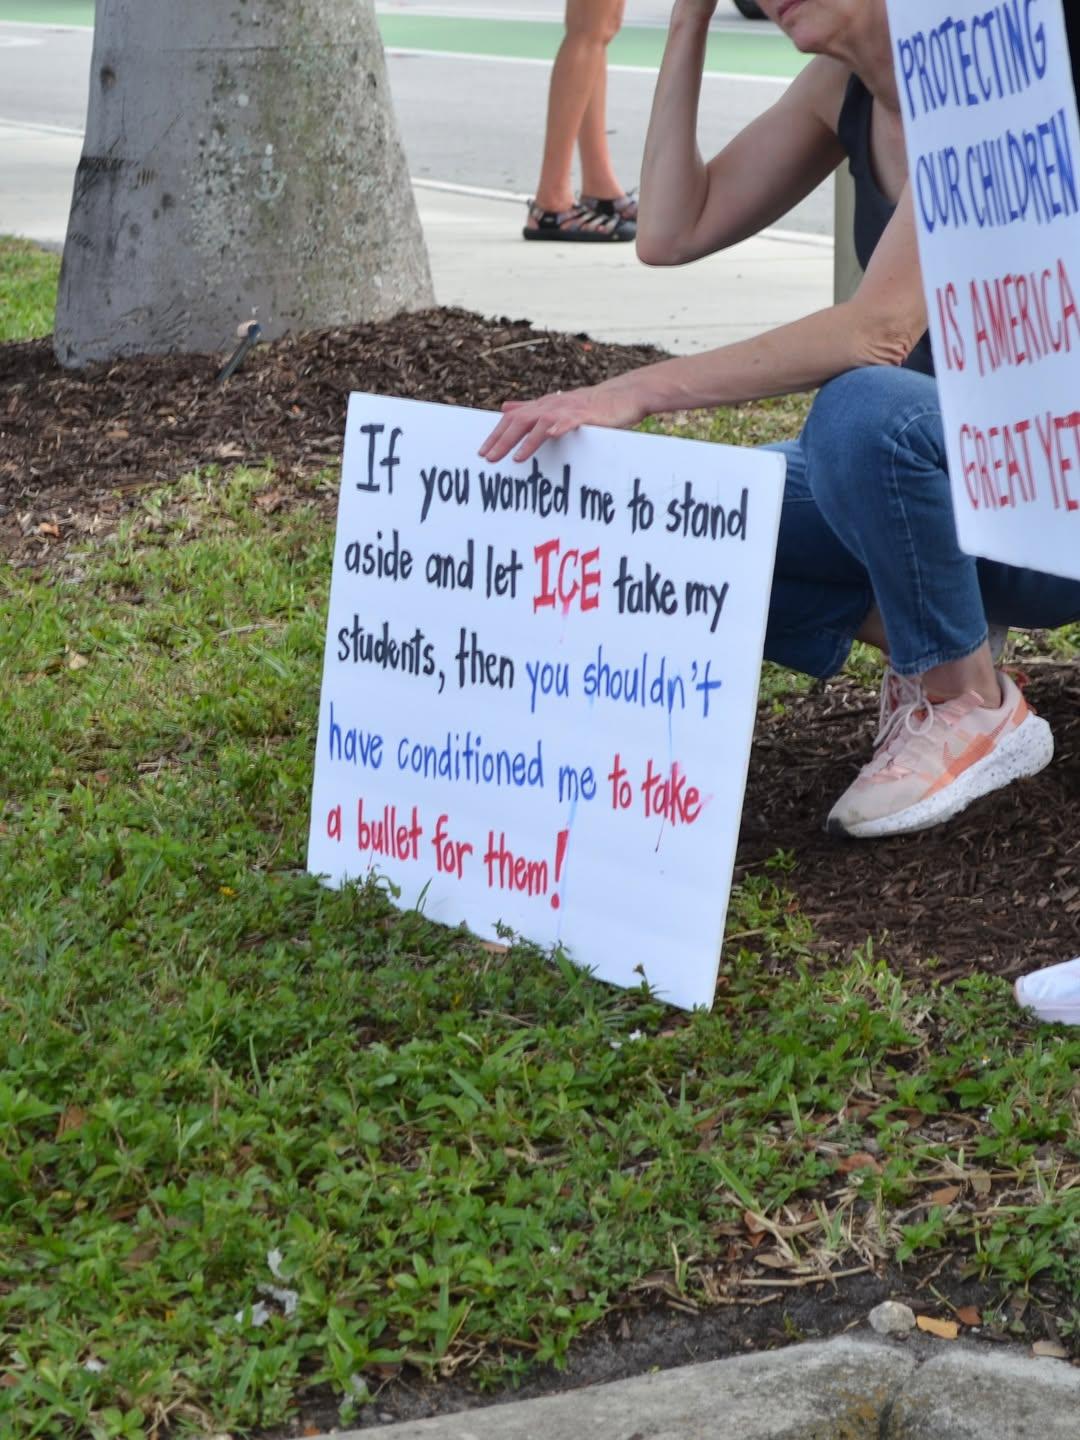 If you wanted me to stand
aside and let ICE take my
students, then you shouldn't
have conditioned me to take
a bullet for them!
PROTECTING
OUR CHILDREN
IS AMERICA
GREAT YET